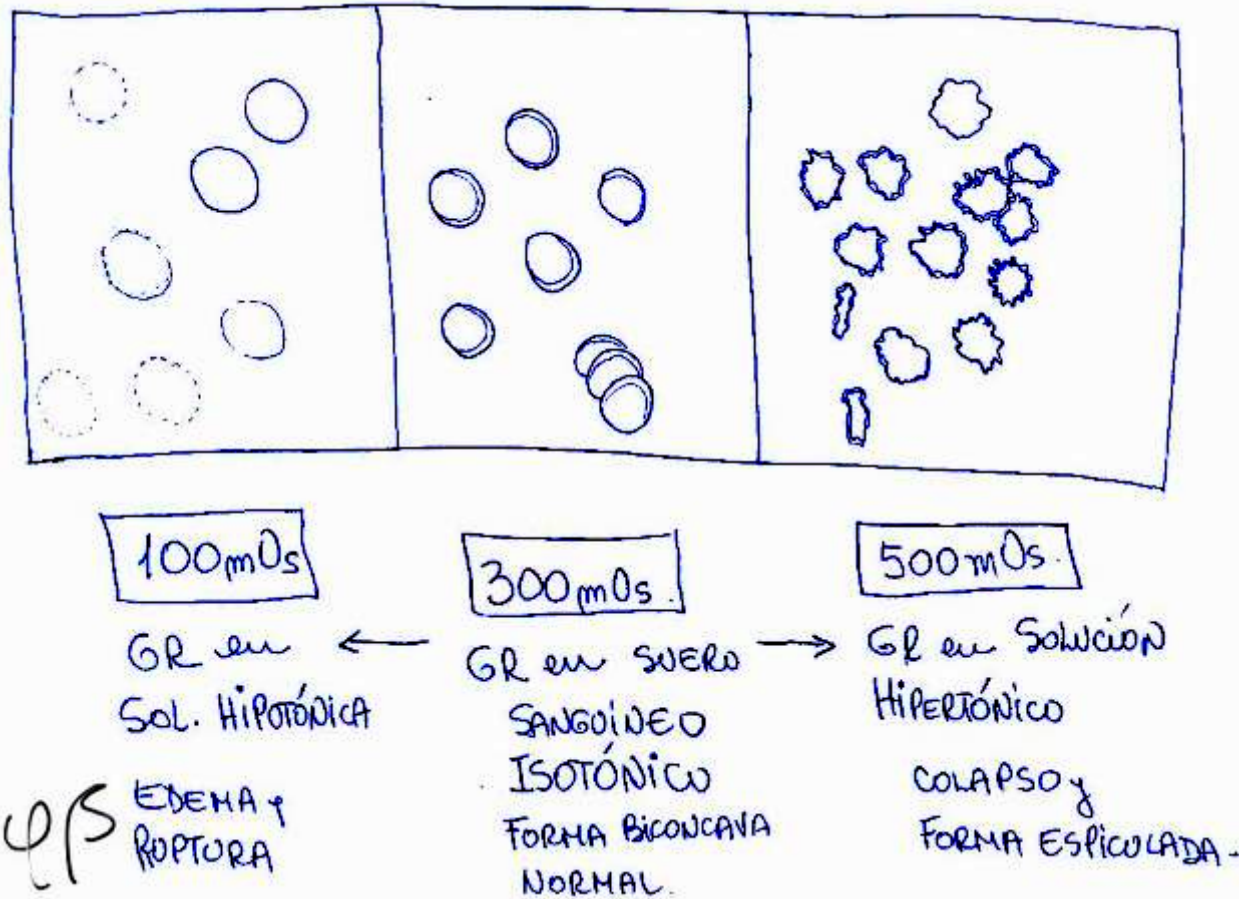 100mOs
GR en
SOL. HIPOTÓNICA
EDEMA y
RUPTURA
300mOs.
GR en SUERO
SANGUÍNEO
ISOTÓNICO
FORMA BICONCAVA
NORMAL.
500mOs.
GR en SOLUCIÓN
HIPERTÓNICO
COLAPSO y
FORMA ESPICULADA-
φβ